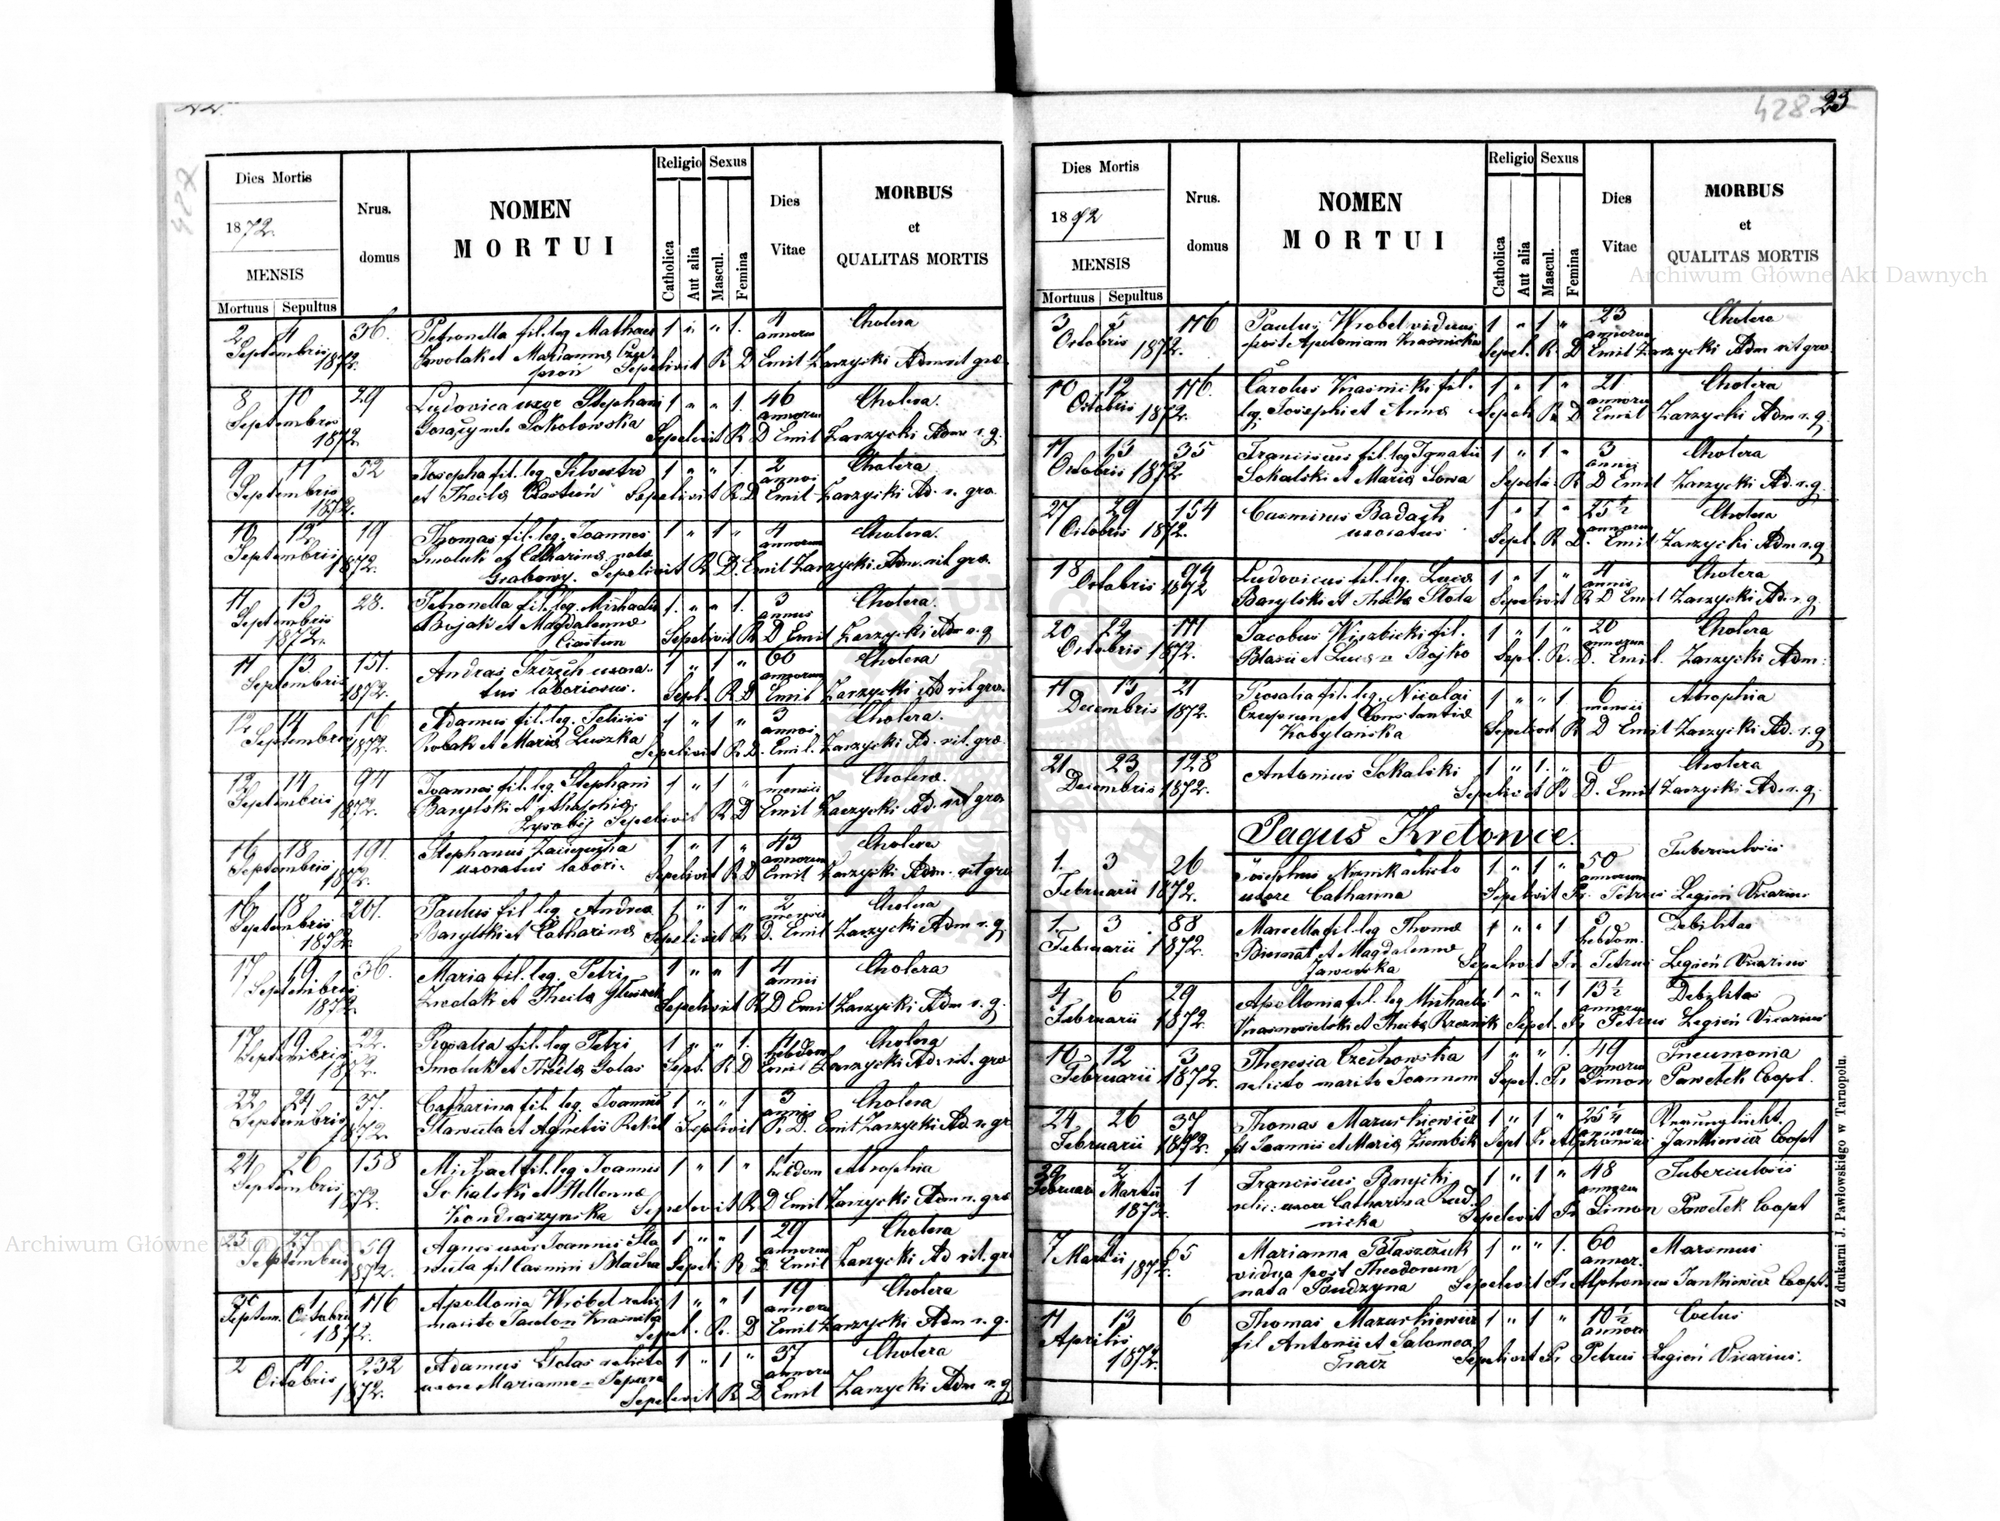 427
Dies Mortis
1872.
MENSIS
Mortuus Sepultus
Nrus.
domus
NOMEN
MORTUI
Religio
Catholica
Aut alia
Sexus
Mascul.
Femina
Dies
Vitae
MORBUS
et
QUALITAS MORTIS
2 4 36. Petronella fil. leg. Mathaei 1 " " 1. 4 Cholera
Septembris annorum
1872. Sepelivit R D Emil Zarzycki Adm rit græ.
8 10 29 Ludovica uxor Stephani 1 " " 1. 46 Cholera.
Septembris Sokolowska annorum
1872. Sepelivit R D Emil Zarzycki Adm r. g.
9 11 52 Josepha fil. leg. Silvestri 1 " " 1. 2 Cholera
Septembris et Theclæ annoi
1872. Sepelivit R D Emil Zarzycki Ad. r. græ
10 12 19 Thomas fil. leg. Joannes 1 " 1 " 4 Cholera.
Septembris Smoluk et Catharinæ natæ annorum
1872. Grabowy. Sepelivit R D. Emil Zarzycki Adm. rit græ.
11 13 28. Petronella fil. leg. Michaelis 1. " " 1. 3 Cholera.
Septembris Bojak et Magdalennæ annus
1872. Sepelivit R D Emil Zarzycki Adm r. g
11 13 151. Andreas uxora- 1 " 1 " 60 Cholera
Septembris tus laboriosus. annorum
1872. Sepel. R D Emil Zarzycki Ad rit græ.
12 14 16 Adamus fil. leg. Felicis 1 " 1 " 3 Cholera.
Septembris Robak et Mariæ Luszka annoi
1872. Sepelivit R D. Emil. Zarzycki Ad. rit. græ
12 14 94 Joannes fil. leg. Stephani 1 " 1 " 1 Cholera.
Septembris Barylski et mensis
1872. Sepelivit R D Emil Zarzycki Ad. rit græ
16 18 191. Stephanus 1 " 1 " 43 Cholera
Septembris uxoratus labori- annorum
1872. Sepelivit R D Emil Zarzycki Adm. rit græ
16 18 201. Paulus fil leg. Andreæ 1 " 1 " 2 Cholera
Septembris Barylski et Catharinæ
1872. Sepelivit R D. Emil Zarzycki Adm r. g.
17 19 36. Maria fil. leg. Petri 1 " " 1 4 Cholera
Septembris et Theclæ annis
1872. Sepelivit R D Emil Zarzycki Adm r. g.
17 19 22. Rosalia fil. leg Petri 1 " " 1. 4 Cholera
Septembris Smoluk et Theclæ Golas hebdom
1872. Sepel. R D Emil Zarzycki Ad. rit. græ
22 24 37. Catharina fil. leg. Joannis 1 " " 1 3 Cholera
Septembris et Agnetis annis
1872. Sepelivit R. D. Emil Zarzycki Ad r. gr
24 26 158 Michael fil. leg Joannis 1 " 1 " 1 Atrophia
Septembris Sokalski et Hellenæ hebdom
1872. Kondraszynska Sepelivit R D Emil Zarzycki Adm r. græ
25 27 59 Agnes uxor Joannis 1 " " 1 29 Cholera
Septembris fil Casmiri annorum
1872. Sepeli R D. Emil Zarzycki Ad rit. gr
30 1 176 Apollonia Wrobel 1 " " 1 19 Cholera
Septem. Octobris marito Paulo annoru
1872. Sepel. R. D Emil Zarzycki Adm r. g.
2 4 232 Adamus Golas relicto 1 " 1 " 37 Cholera
Octobris uxore Marianna annorum
1872. Sepelivit R D Emil Zarzycki Adm r. g
428 23
Dies Mortis
1872
MENSIS
Mortuus Sepultus
Nrus.
domus
NOMEN
MORTUI
Religio
Catholica
Aut alia
Sexus
Mascul.
Femina
Dies
Vitae
MORBUS
et
QUALITAS MORTIS
3 5 176 Paulus Wrobel viduus 1 " 1 " 23 Cholera
Octobris post Apoloniam Krasnicka annorum
1872. Sepel. R. D Emil Zarzycki Adm rit græ.
10 12 176. Carolus Krasnicki fil. 1 " 1 " 21 Cholera
Octobris leg. Josephi et Annæ annorum
1872. Sepeli. R D Emil Zarzycki Adm r. g.
11 13 35 Franciscus fil. leg Ignatii 1 " 1 " 3 Cholera
Octobris 1872 Sokalski et Mariæ Sowa annis
Sepeli. R D Emil Zarzycki Ad r. g.
27 29 154 Casmirus Badach 1 " 1 " 25 ½ Cholera
Octobris 1872. uxoratus annorum
Sepel. R D. Emil Zarzycki Adm r. g
18 94 Ludovicus fil. leg. Lucæ 1 " 1 " 4 Cholera
Octobris 1872 Barylski et Thecla Stola annis
Sepelivit R D Emil Zarzycki Ad. r. g.
20 22 171 Jacobus fil. 1 " 1 " 20 Cholera
Octobris 1872. Blasii et Bojko annorum
Sepel. R. D. Emil. Zarzycki Adm:
11 13 21 Rosalia fil. leg. Nicolai 1 " " 1 6 Atrophia
Decembris 1872. Czuprun et Constantiæ mensis
Kobylanska Sepelivit R D Emil Zarzycki Ad. r. g
21 23 128 Antonius Sokalski 1 " 1. " Cholera
Decembris 1872. Sepelivit R D. Emil Zarzycki Ad r. g.
Pagus Kretowce.
1. 3 26 Josephus relicto 1 " 1 " 50 Tuberculosis
Februarii 1872. uxore Catharina annorum
Sepelivit Pr. Petrus Legień Vicarius
1. 3 88 Marcella fil. leg Thomæ 1 " " 1 3 Debilitas
Februarii 1872. et Magdalennæ hebdom.
Jaworska Sepelivit Pr Petrus Legień Vicarius
4 6 29 Apollonia fil. leg Michaelis 1 " " 1 13 ½ Debilitas
Februarii 1872. et Theclæ Rzeznik annorum
Sepel. Pr Petrus Legień Vicarius
10 12 3 Theresia Czechowska 1 " " 1. 49 Pneumonia
Februarii 1872. relicto marito Joannem annorum
Sepel. Pr. Simon Pawelek Coopt.
24 26 37 Thomas Mazurkiewicz 1 " 1 " 25
Februarii 1872. fil Joannis et Mariæ annorum
Sepel Pr Alphonsius Jankiewicz Coopt
29 2 1 Franciscus 1 " 1 " 48 Tuberculosis
Februar Martii relic: uxore Catharina Rud- annorum
1872. nicka Sepelivit Pr Simon Pawelek Coopt
7 9 65 Marianna Błaszczuk 1 " " 1. 60 Marasmus
Martii vidua post Theodorum annor.
1872. nata Sepelivit Pr Alphonsius Jankiewicz Coopt.
11 13 6 Thomas Mazurkiewicz 1 " 1 " 10 ½
Aprilis fil Antonii et Salomea annoru
1872. Tracz Sepelivit Pr Petrus Legień Vicarius.
Z drukarni J. Pawłowskiego w Tarnopolu.
Archiwum Główne Akt Dawnych
Archiwum Główne Akt Dawnych